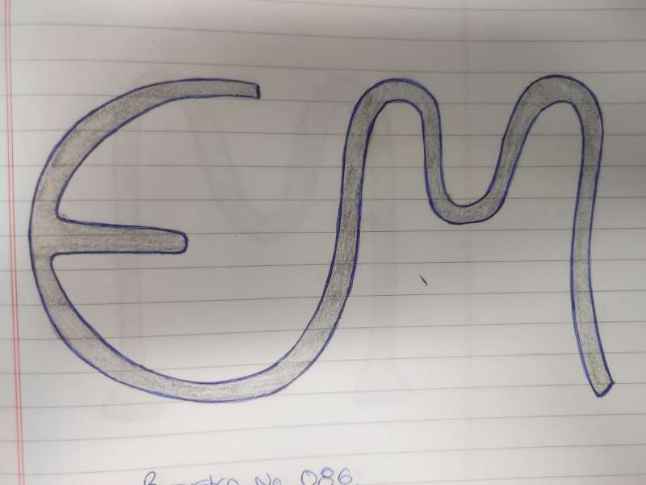 EM
No 086